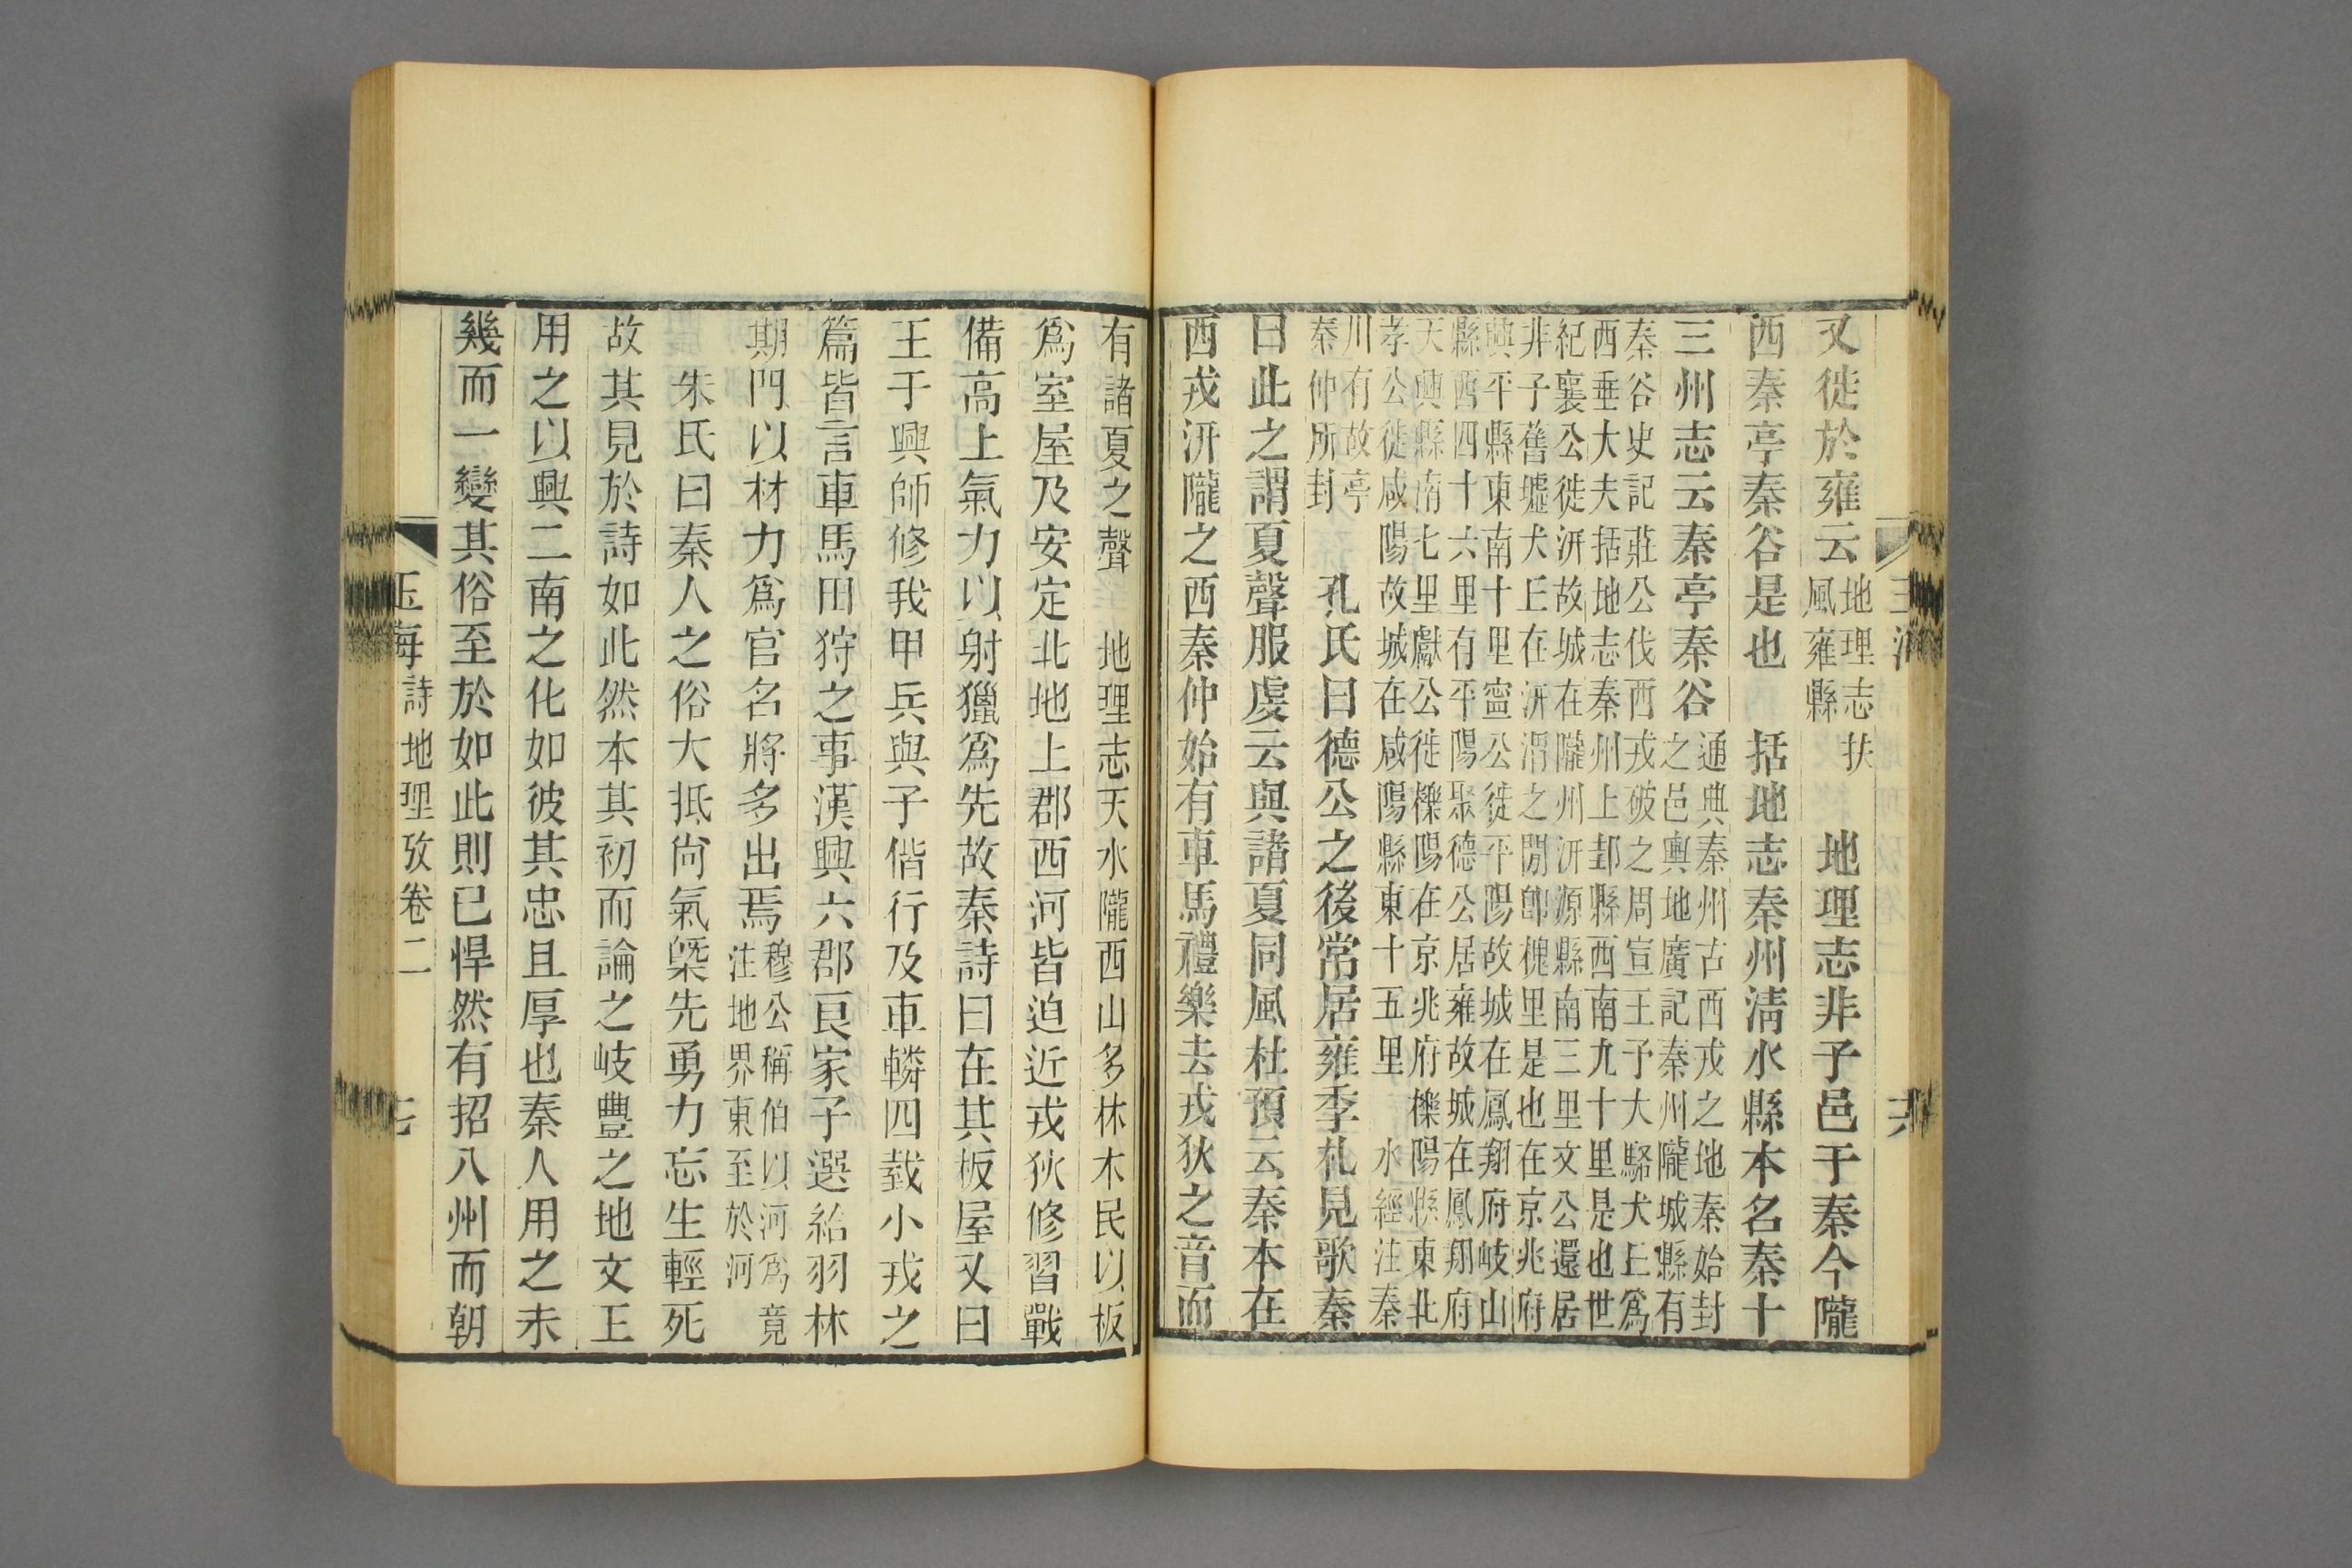 又徙於雍云地理志扶
風雍縣 地理志非子邑于秦今隴
西秦亭秦谷是也 括地志秦州清水縣本名秦十
三州志云秦亭秦谷通典秦州古西戎之地秦始封
之邑輿地廣記秦州隴城縣有
秦谷史記莊公伐西戎破之周宣王予大駱犬丘爲
西垂大夫括地志秦州上邽縣西南九十里是也世
紀襄公徙汧故城在隴州汧源縣南三里文公還居
非子舊墟犬丘在汧渭之閒卽槐里是也在京兆府
興平縣東南十里寧公徙平陽故城在鳳翔府岐山
縣西四十六里有平陽聚德公居雍故城在鳳翔府
天興縣南七里獻公徙櫟陽在京兆府櫟陽縣東北
孝公徙咸陽故城在咸陽縣東十五里 水經注秦
川有故亭
秦仲所封 孔氏曰德公之後常居雍季札見歌秦
曰此之謂夏聲服虔云與諸夏同風杜預云秦本在
西戎汧隴之西秦仲始有車馬禮樂去戎狄之音而
有諸夏之聲 地理志天水隴西山多林木民以板
爲室屋及安定北地上郡西河皆迫近戎狄修習戰
備高上氣力以射獵爲先故秦詩曰在其板屋又曰
王于興師修我甲兵與子偕行及車轔四臷小戎之
篇皆言車馬田狩之事漢興六郡良家子選給羽林
期門以材力爲官名將多出焉穆公稱伯以河爲竟
注地界東至於河
朱氏曰秦人之俗大抵尙氣槩先勇力忘生輕死
故其見於詩如此然本其初而論之岐豐之地文王
用之以興二南之化如彼其忠且厚也秦人用之未
幾而一變其俗至於如此則已悍然有招八州而朝
玉海 詩地理攷卷二 七